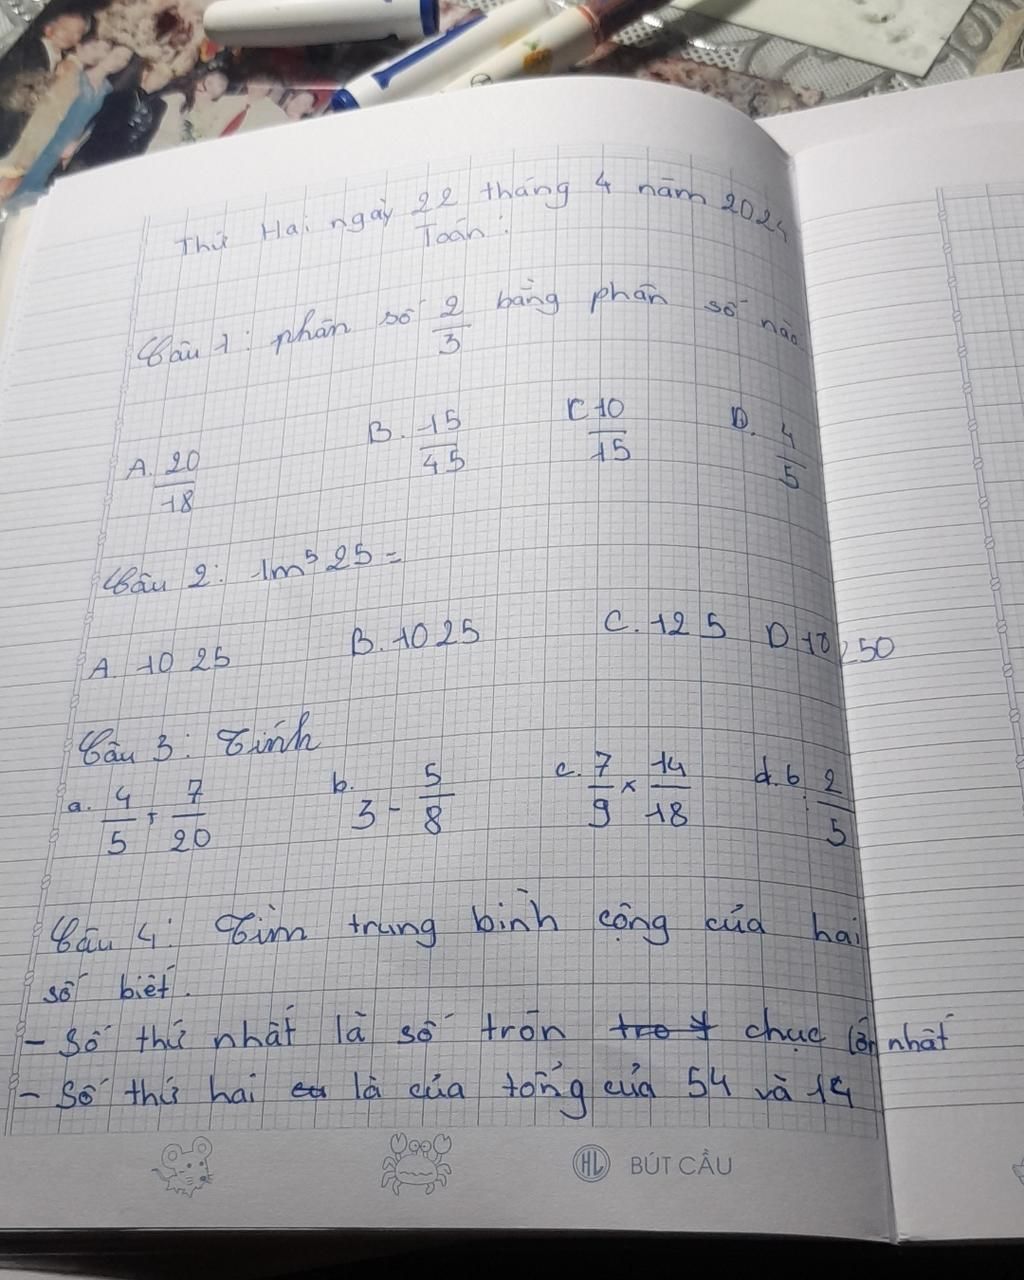 Thứ Hai ngày 22 tháng 4 năm 2024
Toán:
Câu 1: phân số 2/3 bằng phân số nào
A. 20/18 B. 15/45 C 10/15 D. 4/5
Câu 2: 1m⁵ 25 =
A. 10 25 B. 1025 C. 125 D 10250
Câu 3: Tính
a. 4/5 + 7/20 b. 3 - 5/8 c. 7/9 x 14/18 d. 6 : 2/5
Câu 4: Tìm trung bình cộng của hai
số biết.
- Số thứ nhất là số tròn chục lớn nhất
- Số thứ hai là của tổng của 54 và 14
HL BÚT CẦU